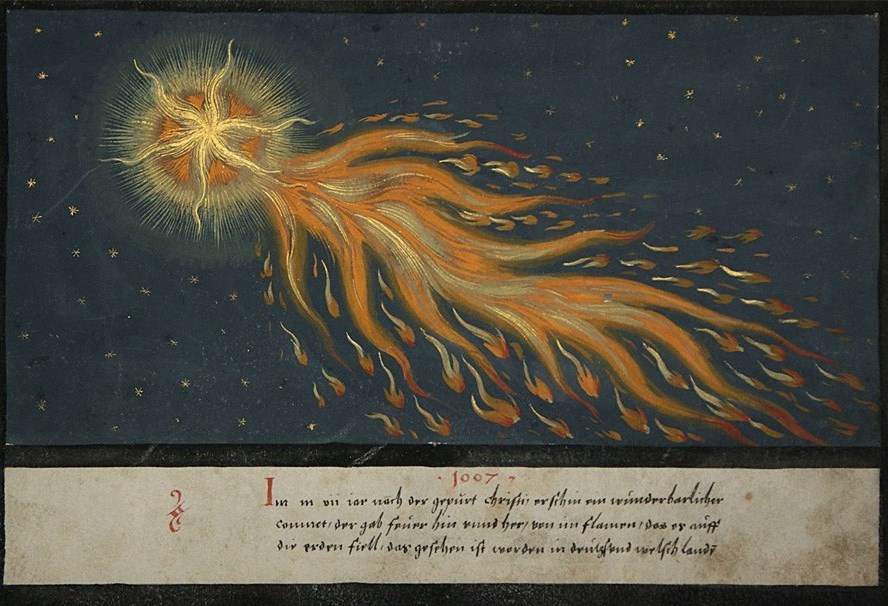 · 1007 ·
Im m vii iar nach der gepurt christi erschin ein wunderbarlicher
commet/ der gab feuer hin vnnd her/ von im flamen/ das es auff
die erden fiell/ das gesehen ist worden in deutsch vnd welsch landt